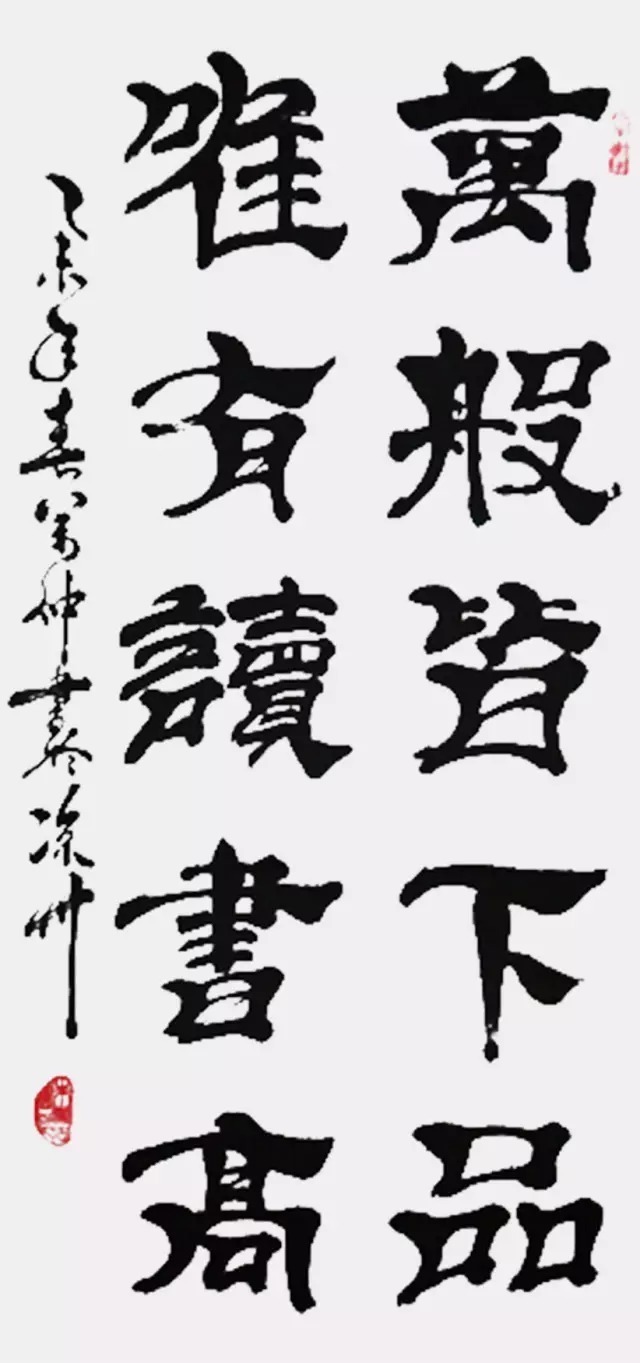 萬般皆下品
唯有讀書高
乙未年春萬仲書於凉州